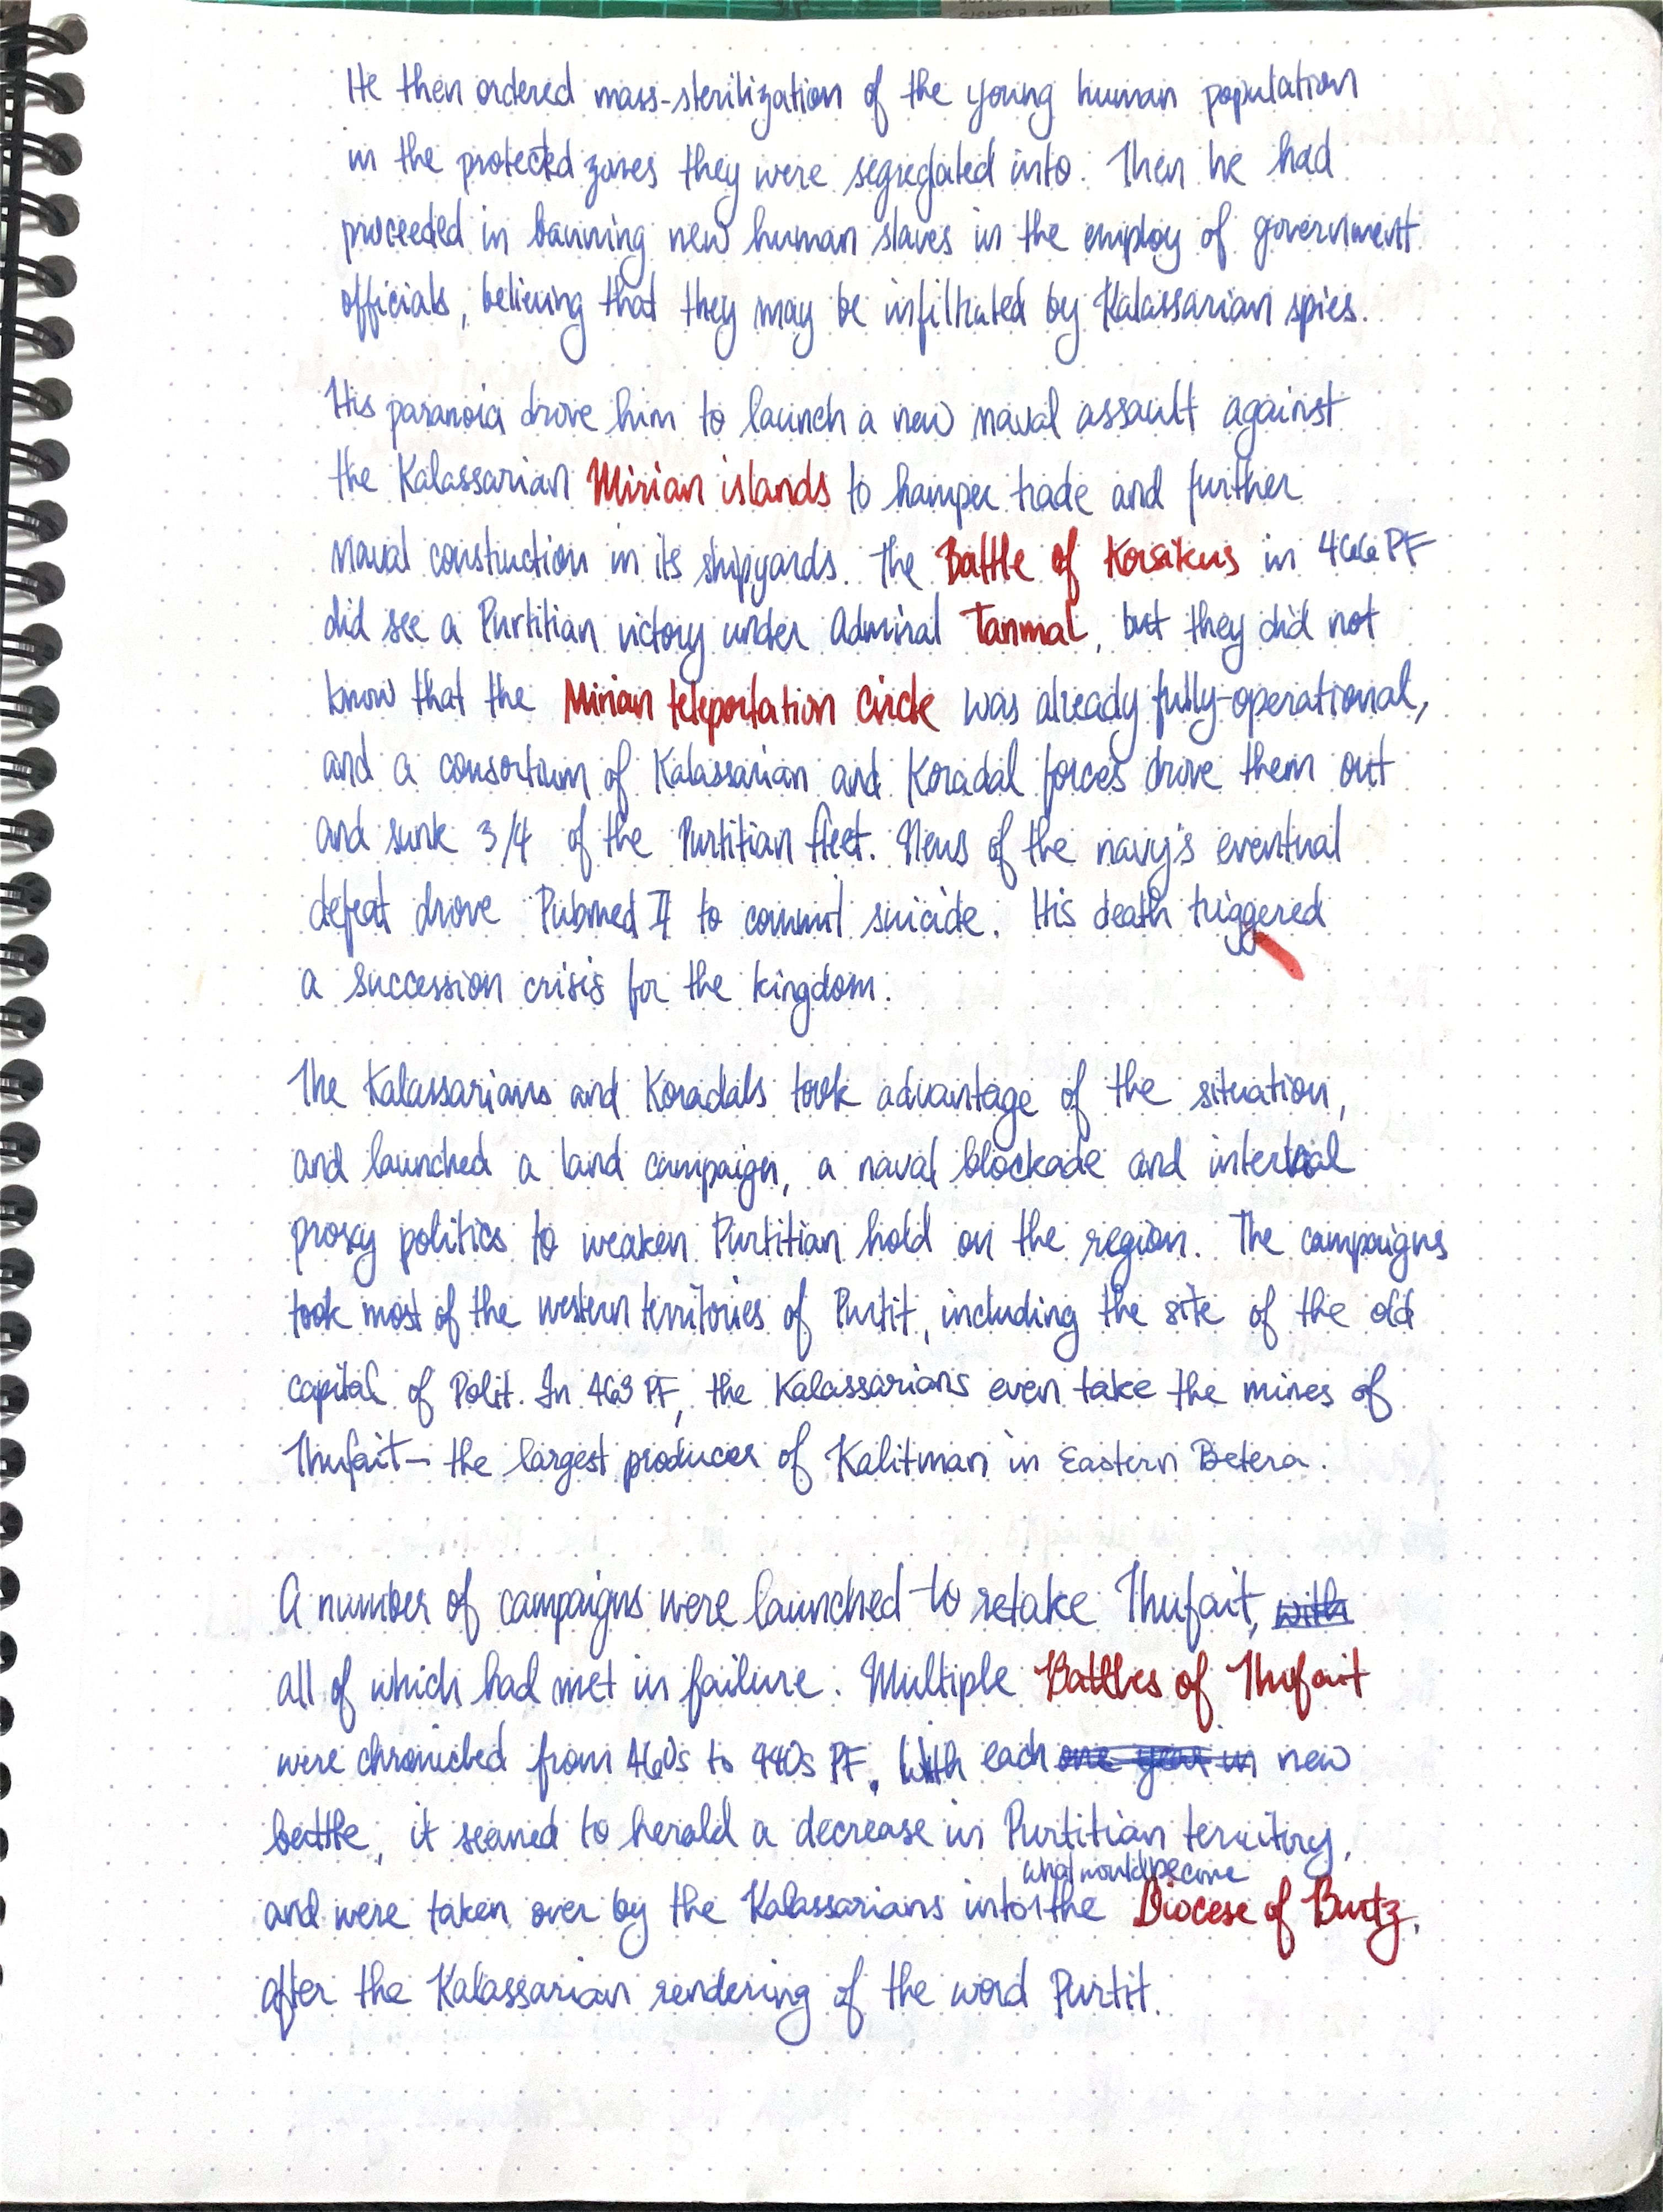 He then ordered mass-sterilization of the young human population
in the protected zones they were segregated into. Then he had
proceeded in banning new human slaves in the employ of government
officials, believing that they may be infiltrated by Kalassarian spies.
His paranoia drove him to launch a new naval assault against
the Kalassarian Mirian islands to hamper trade and further
naval construction in its shipyards. The Battle of Korsikus in 466 PF
did see a Purtitian victory under Admiral Tanmal, but they did not
know that the Mirian teleportation circle was already fully-operational,
and a consortium of Kalassarian and Koradal forces drove them out
and sunk 3/4 of the Purtitian fleet. News of the navy's eventual
defeat drove Pubmed II to commit suicide. His death triggered
a succession crisis for the kingdom.
The Kalassarians and Koradals took advantage of the situation,
and launched a land campaign, a naval blockade and internal
proxy politics to weaken Purtitian hold on the region. The campaigns
took most of the western territories of Purtit, including the site of the old
capital of Polit. In 463 PF, the Kalassarians even take the mines of
Thufait – the largest producer of Kalitman in Eastern Betera.
A number of campaigns were launched to retake Thufait, with
all of which had met in failure. Multiple Battles of Thufait
were chronicled from 460s to 440s PF. With each one year in new
battle, it seemed to herald a decrease in Purtitian territory,
what would become
and were taken over by the Kalassarians into the Diocese of Burtz,
after the Kalassarian rendering of the word Purtit.